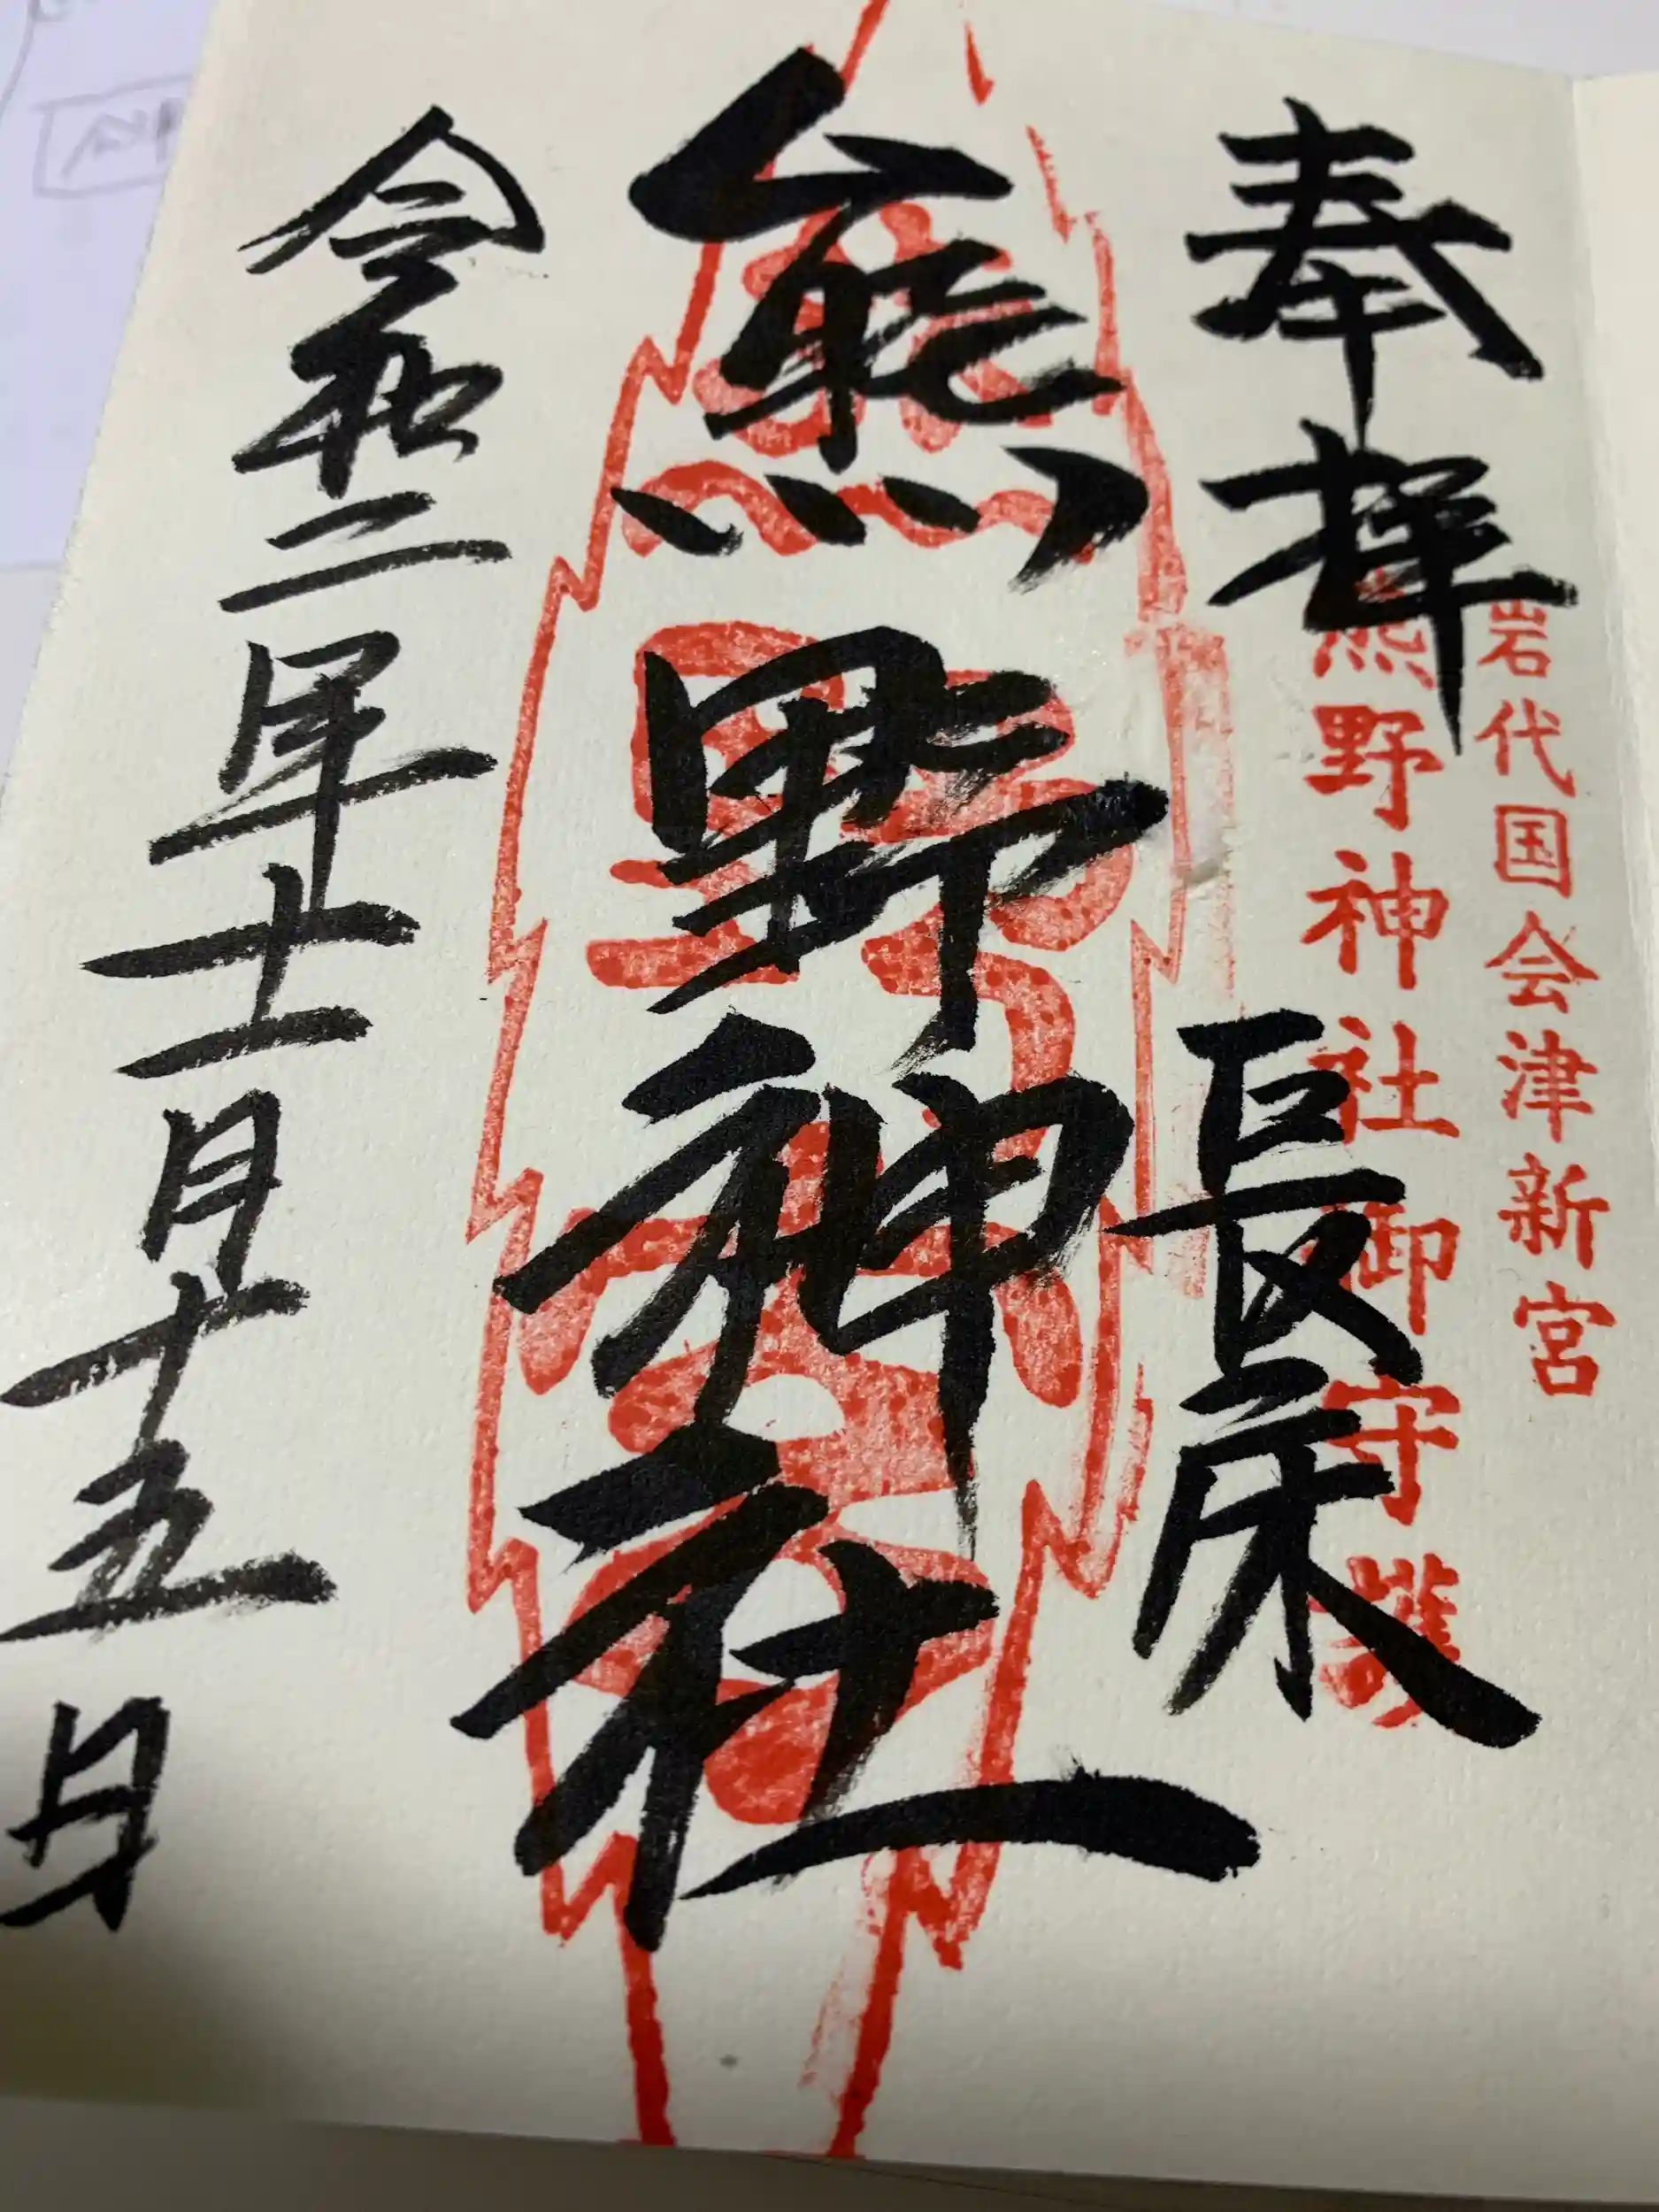 奉拝
長床
岩代国会津新宮
熊野神社御守護
熊野神社
令和二年十二月十五日